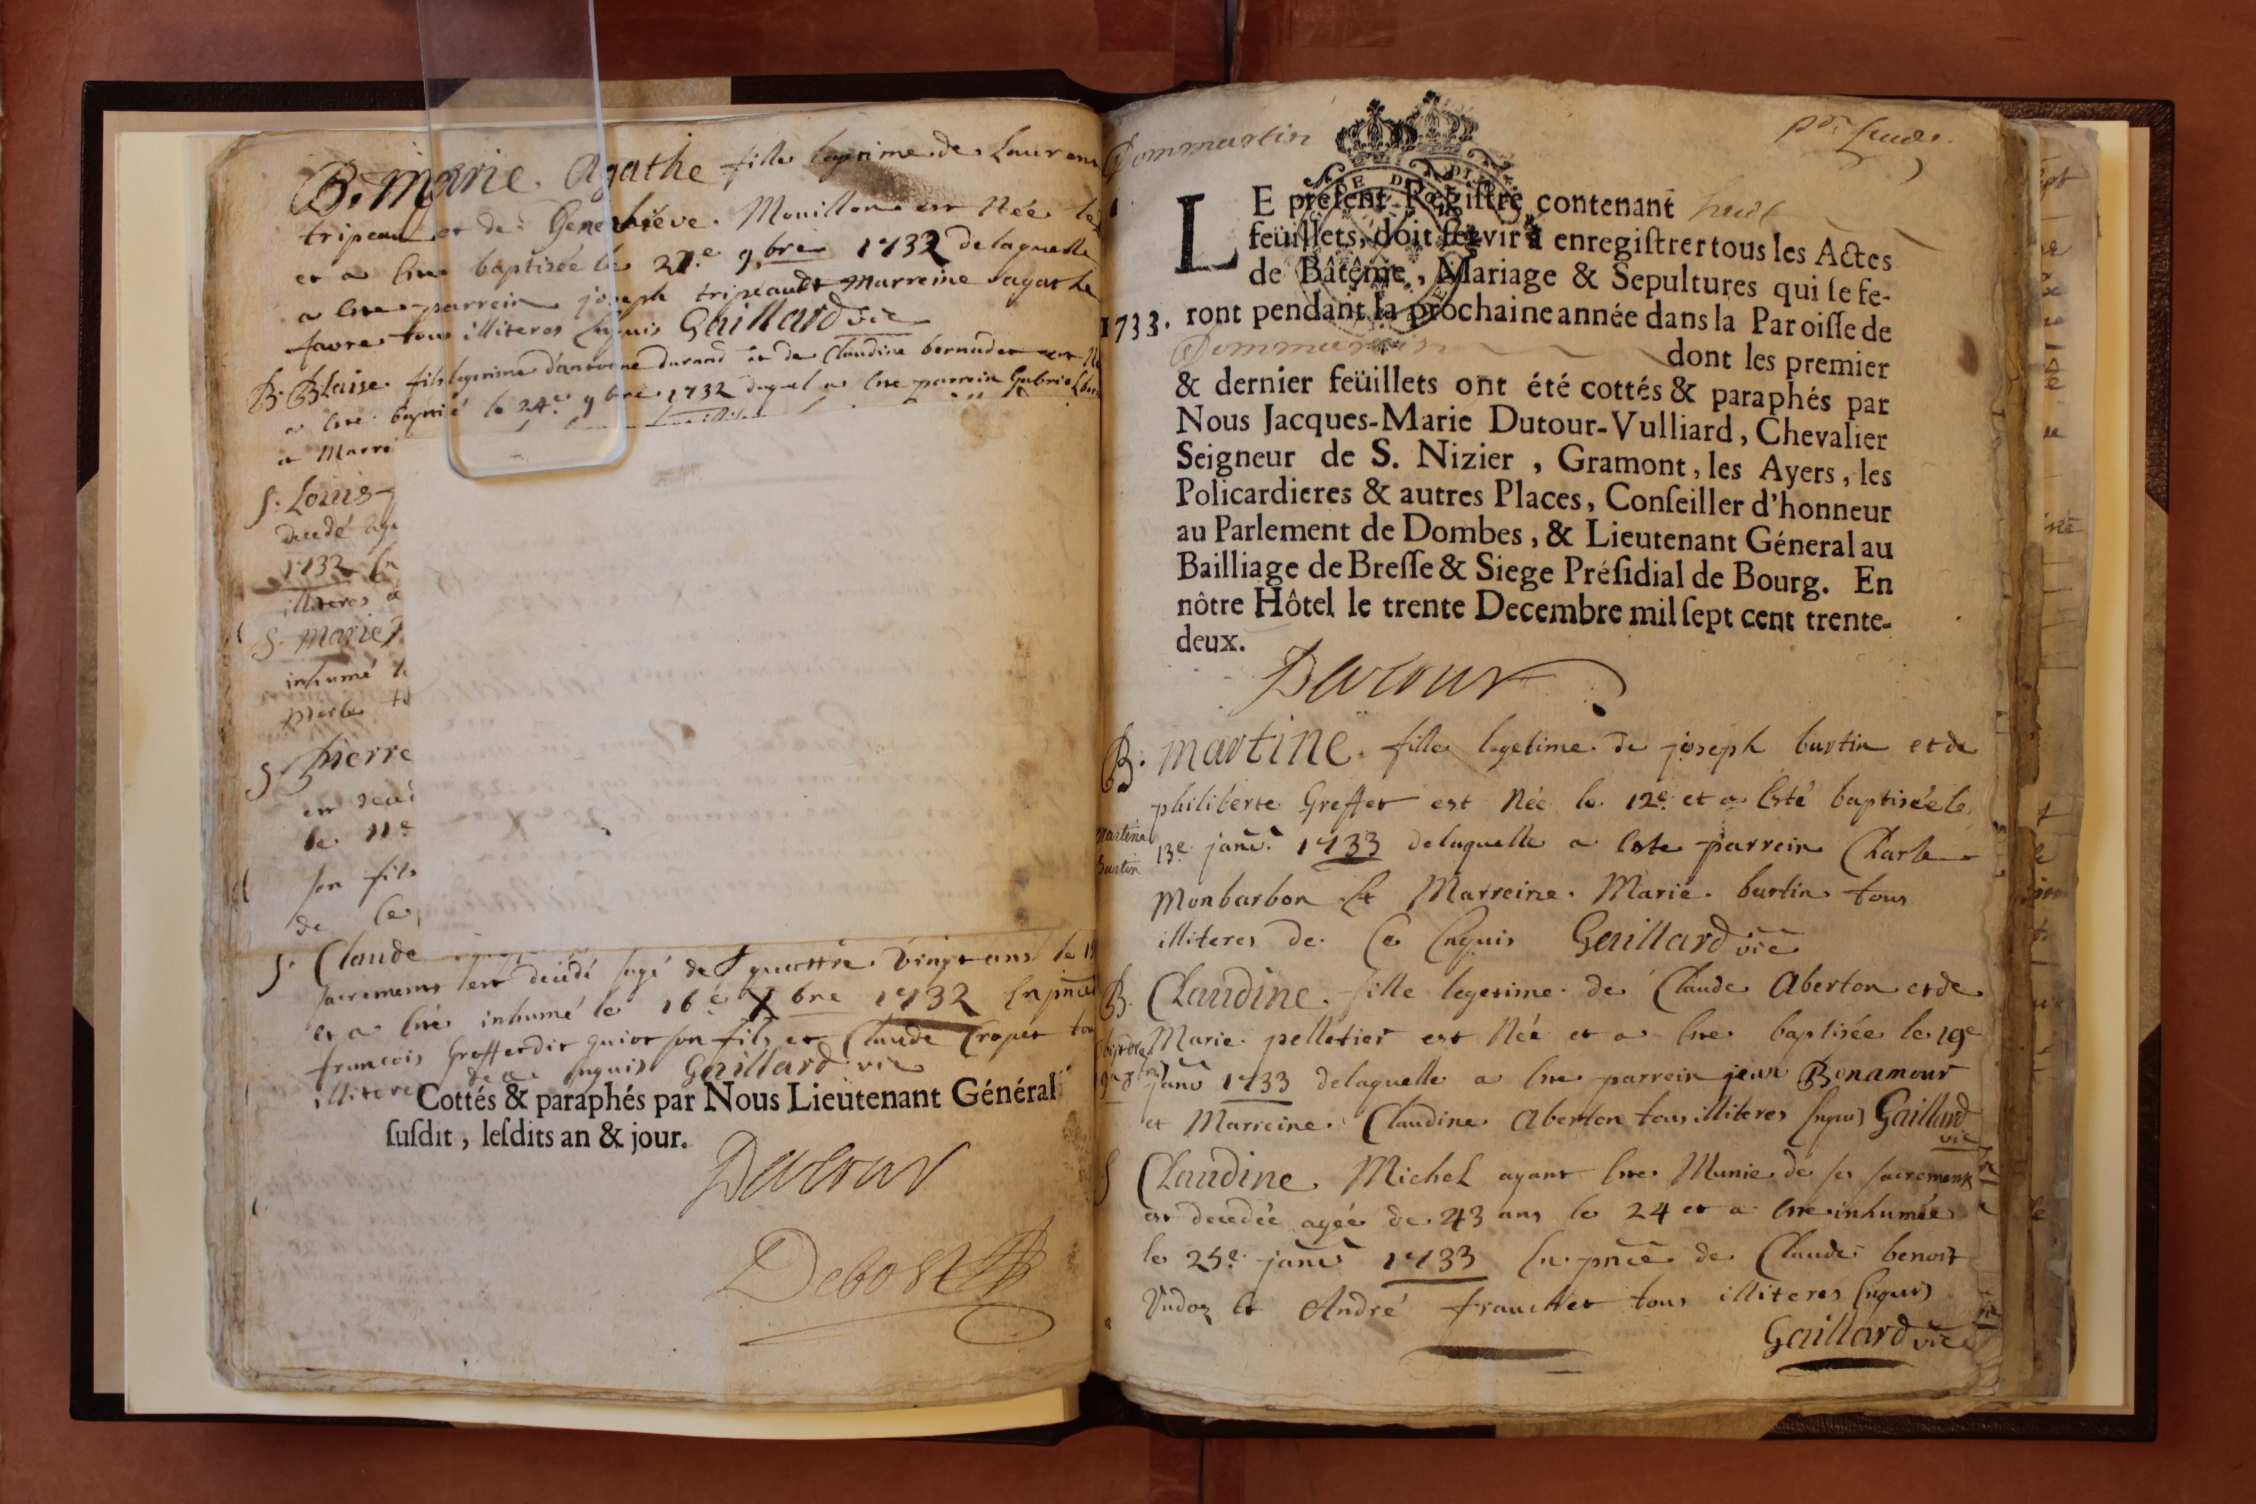 B. Marie. Agathe fille legetime de Laurent
tripeau et de Genevieve. Mouillon est Née le
et a Este baptisée le 9.bre 1732 de laquelle
a Este parrein joseph tripeaudt Marreine agathe
favre tous illiteres Enquis Gaillard vic
B. Blaise. fils legetime d'antoene durand et de Claudine bernudet est
a Este baptisé le 24.e 9bre 1732 duquel a Este parrein Gabriel
a Marre
S. Louis
decedé
1732 En
illiteres
S. Marie
inhumé
S. Pierre
est
le 11e
son fils
de Ce
S. Claude
sacremens est decedé agé de quattre vingt ans le
et a Esté inhumé le 16e Xbre 1732 En pñce
francois Greffet dit guiot son fils et Claude Cropet
illitere de ce enquis Gaillard vic
Cottés & paraphés par Nous Lieutenant Général
ſuſdit, leſdits an & jour.
Dutour
Debost
Dommartin
LE preſent Regiſtre contenant huit
feüillets, doit ſervir à enregiſtrer tous les Actes
de Bâtême, Mariage & Sepultures qui ſe fe-
1733. ront pendant la prochaine année dans la Paroiſſe de
Dommartin dont les premier
& dernier feüillets ont été cottés & paraphés par
Nous Jacques-Marie Dutour-Vulliard, Chevalier
Seigneur de S. Nizier, Gramont, les Ayers, les
Policardieres & autres Places, Conſeiller d'honneur
au Parlement de Dombes, & Lieutenant Géneral au
Bailliage de Breſſe & Siege Préſidial de Bourg. En
nôtre Hôtel le trente Decembre mil ſept cent trente-
deux.
Dutour
B. Martine. fille legetime de joseph burtin et de
philiberte Greffet est Née le 12e et a Esté baptisée le
Martine
burtin
13e janv. 1733 de laquelle a Este parrein Charle
Monbarbon Et Marreine. Marie. burtin tous
illiteres de Ce Enquis Gaillard vic
B. Claudine. fille legetime de Claude Aberton et de
Marie pelletier est Née et a Este baptisée le 19e
janv 1733 de laquelle a Este parrein jean Bonamour
et Marreine. Claudine Aberton tous illiteres Enquis Gaillard
vic
S Claudine. Michel ayant Este Munie de ses sacremens
est decedée agée de 43 ans le 24 et a Este inhumée
le 25e janv 1733 En pñce de Claude benoit
Vudoz Et André franchet tous illiteres Enquis
Gaillard vic